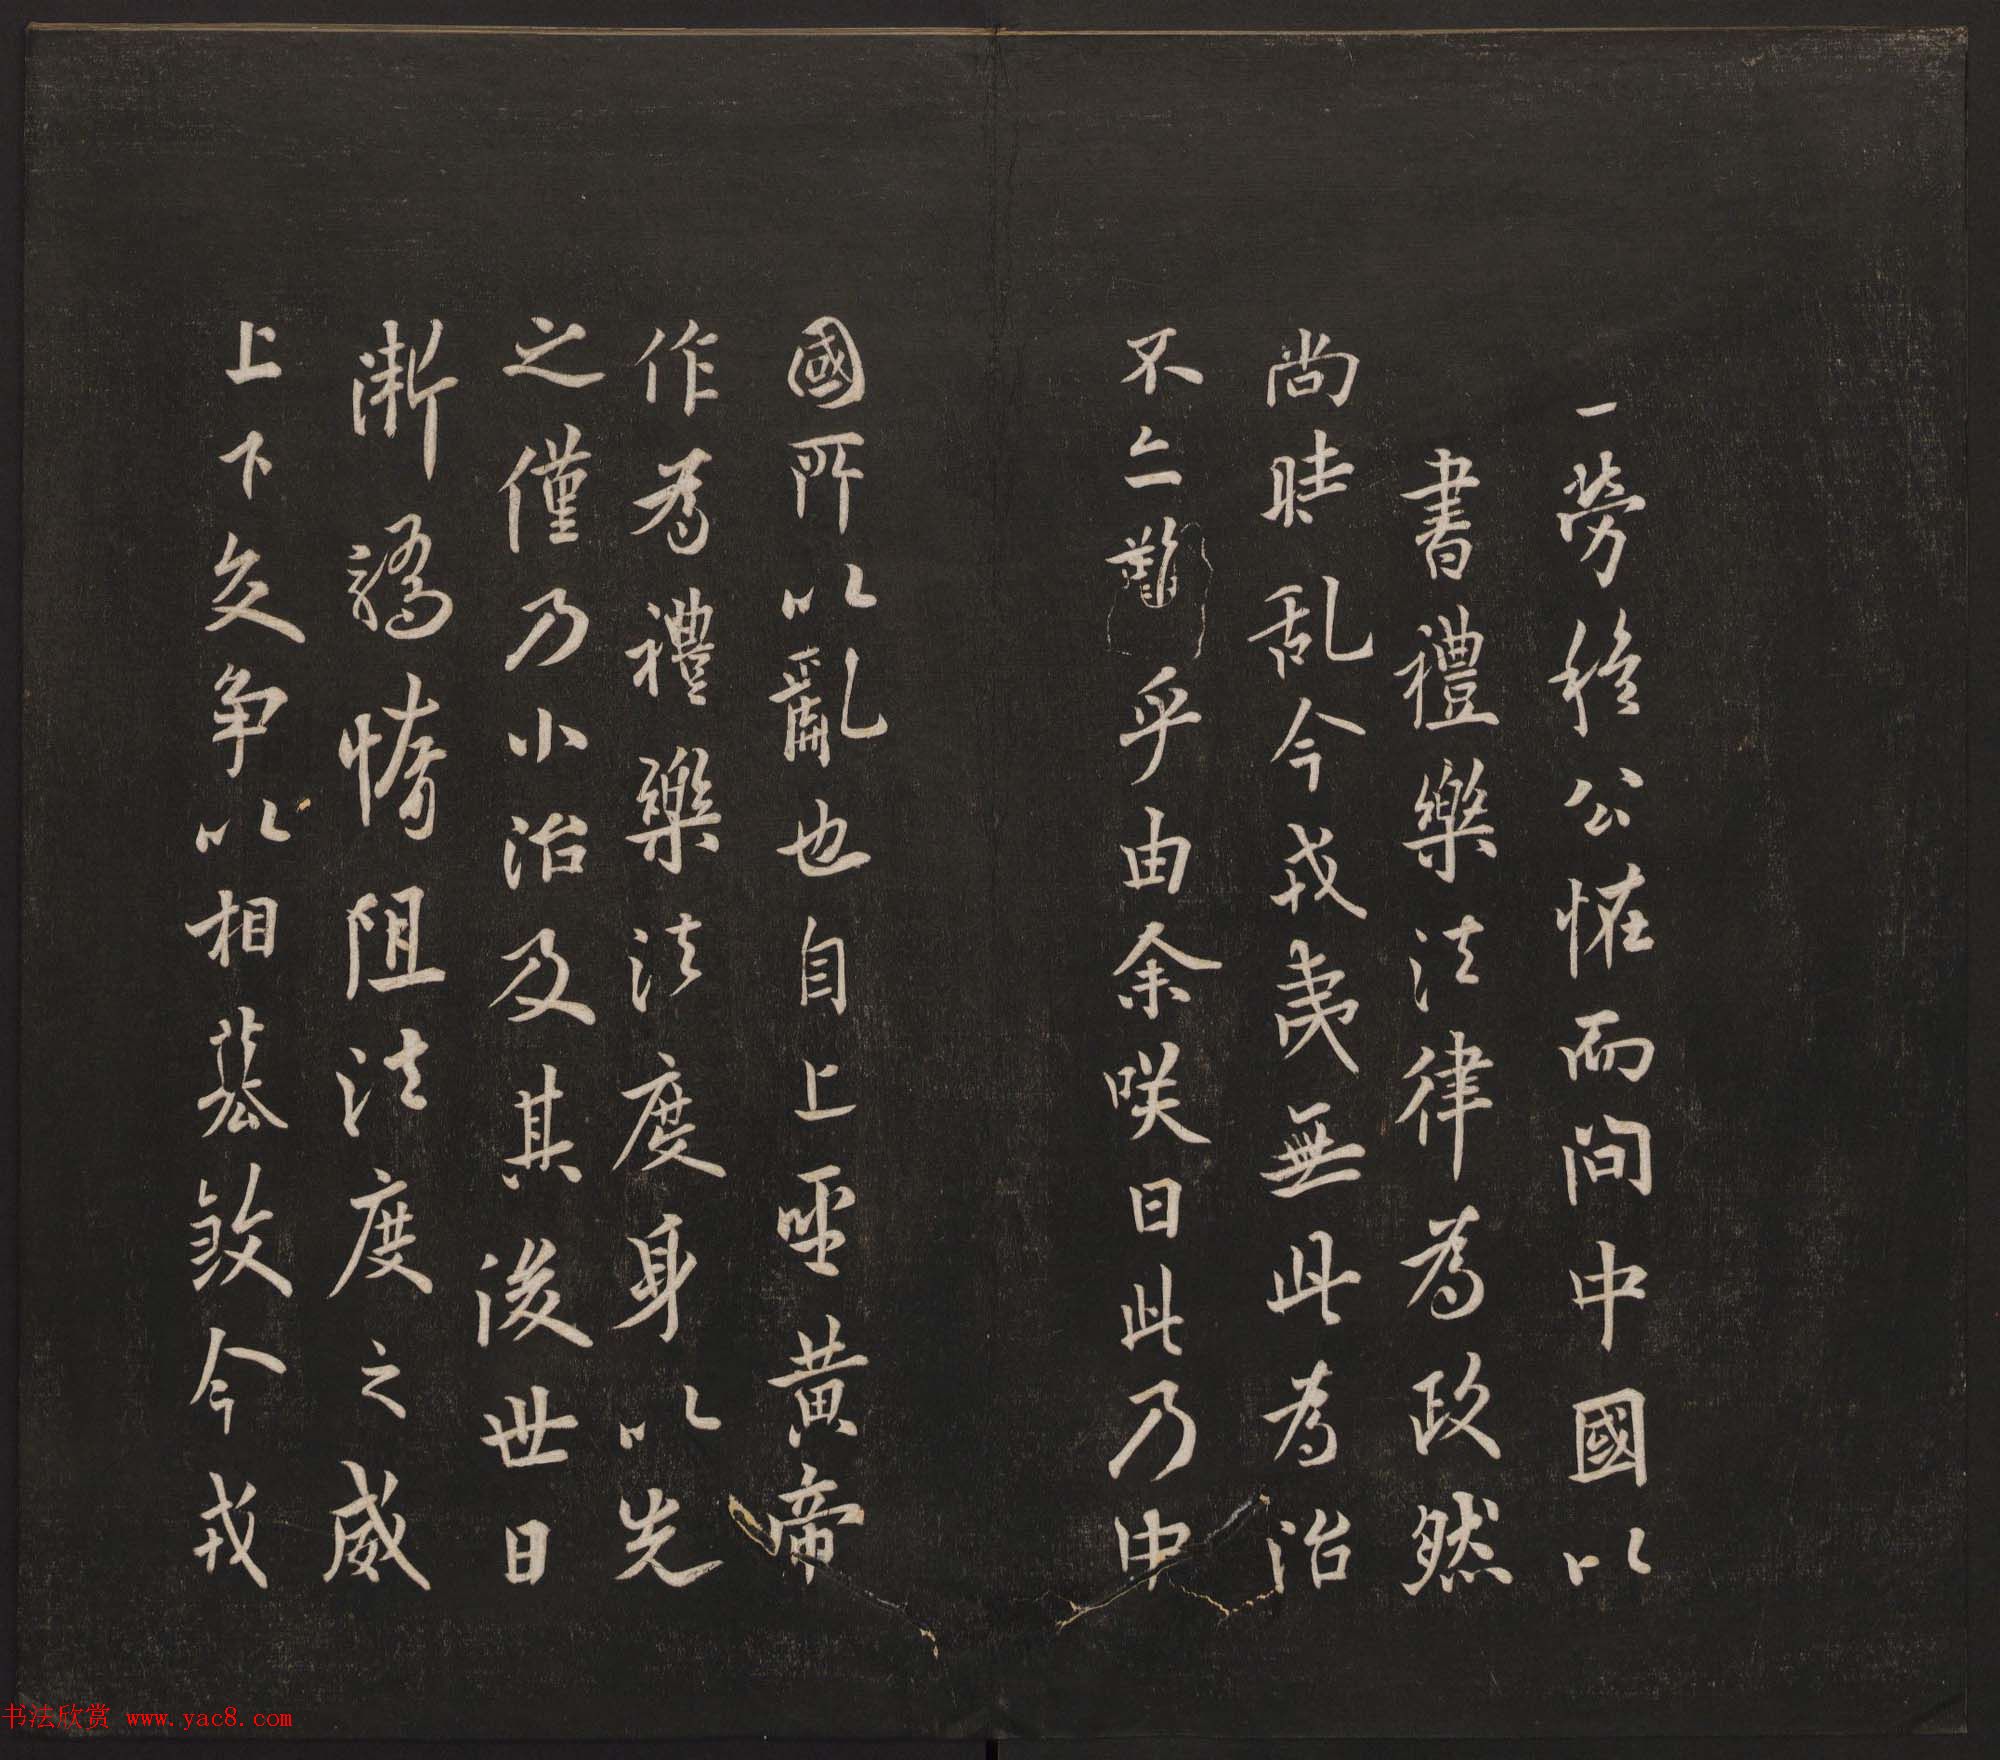 一勞穆公恠而问中國以
書禮樂法律為政然
尚時乱今戎夷無此為治
不亦難乎由余咲曰此乃中
國所以亂也自上聖黃帝
作為禮樂法度身以先
之僅乃小治及其後世日
漸驕惰阻法度之威
上下交争以相今戎
书法欣赏 www.yac8.com